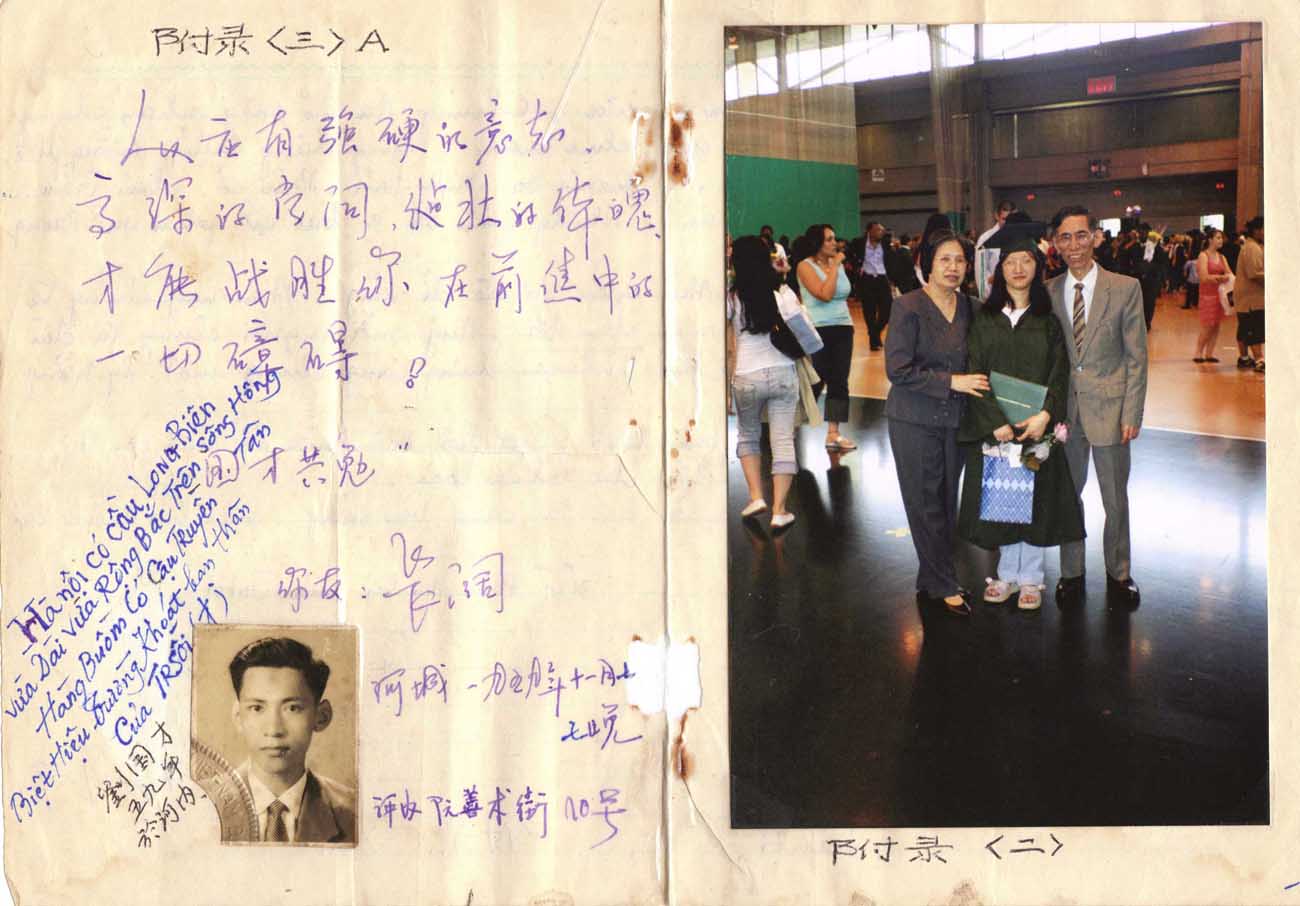 附录〈三〉A
人必应有強硬的意志、
高深的学问、強壮的体魄、
才能战胜你、在前途中的
一切障碍!
国才共勉
你友:長阔
河城一九五九年十一月七
七晚
阮善术街10号
Hà nội có cầu Long Biên
vừa Dài vừa Rộng Bắc Trên sông Hồng
Hàng Buồm có Cậu Truyền Tân
Biệt Hiệu trường Khoát bạn thân
Của TRSỐI (才)
劉国才
五九年
於河内
附录〈二〉